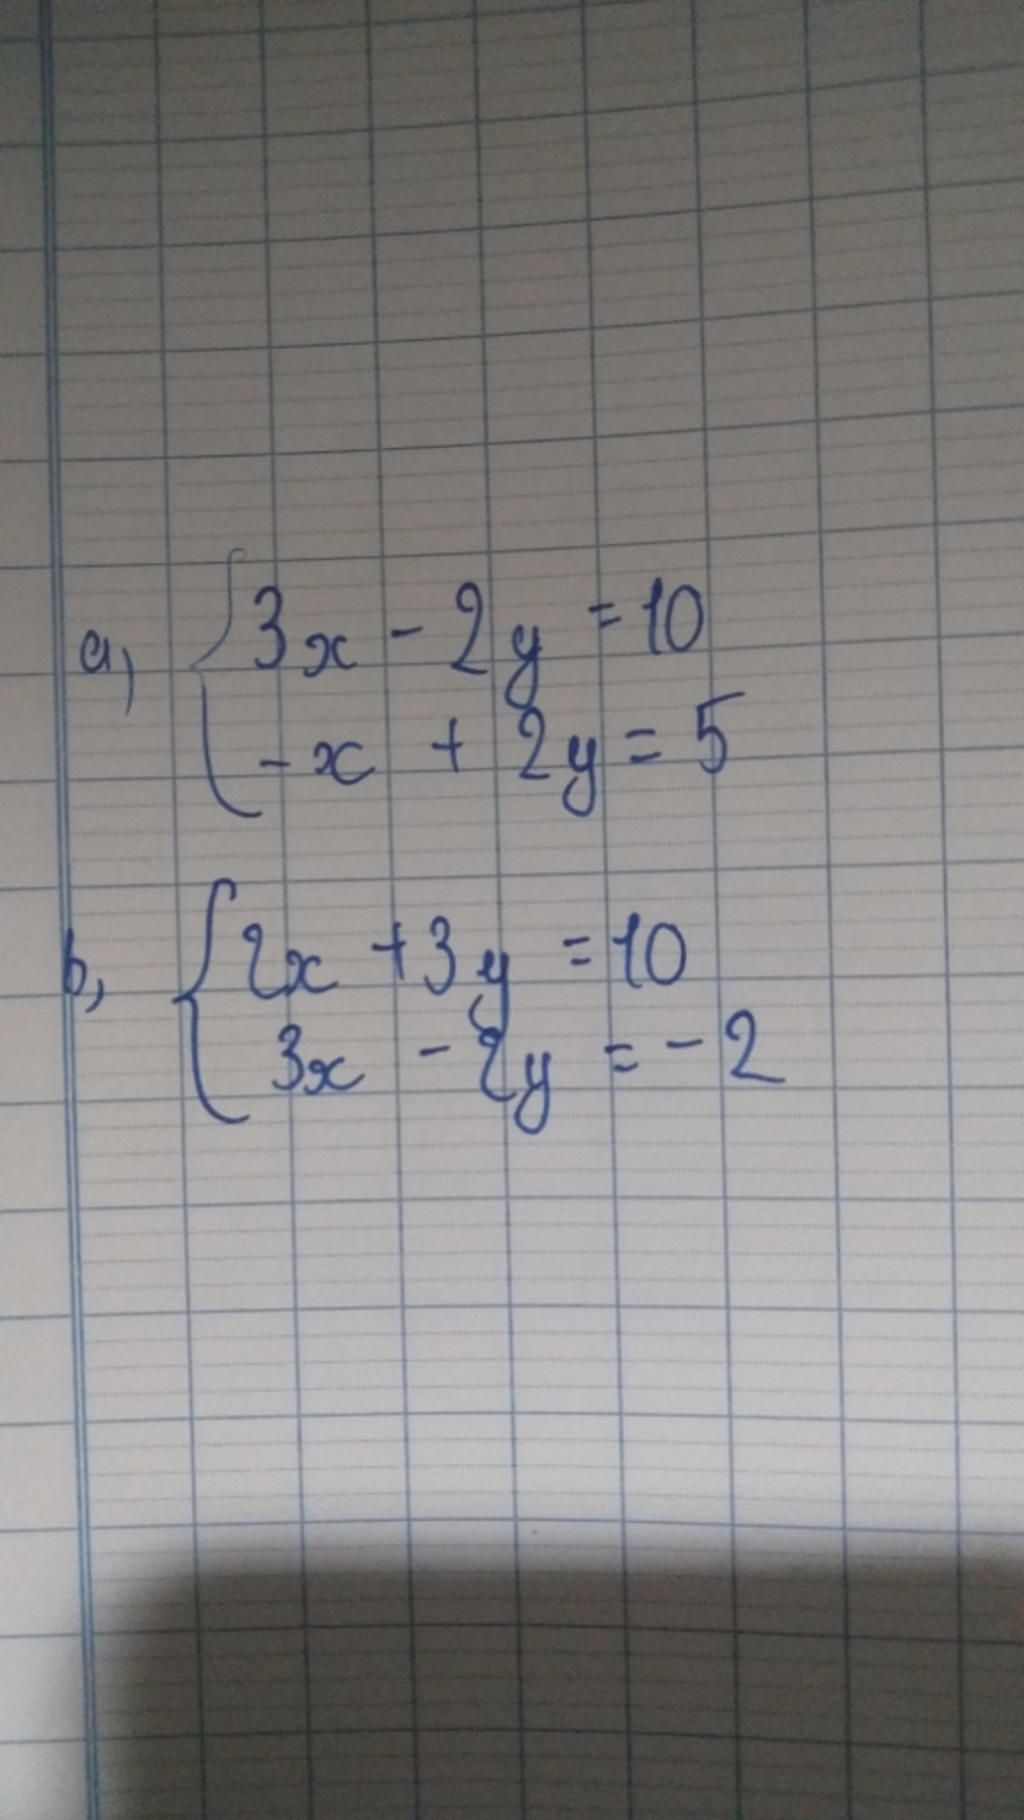 a, { 3x - 2y = 10
- x + 2y = 5
b, { 2x + 3y = 10
3x - 2y = - 2